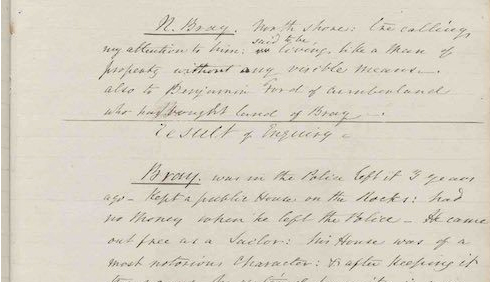 N. Bray. North shore: Ere calling,
my attention to him; said to be living, like a man of
property without any visible means.
also to Benjamin Ford of Cumberland
who has bought land of Bray.
Result of Enquiry.
Bray. was in the Police left it 3 years
ago - Kept a public House on the Rocks: had
no money when he left the Police - He came
out free as a Sailor: his House was of a
most notorious Character: & after keeping it